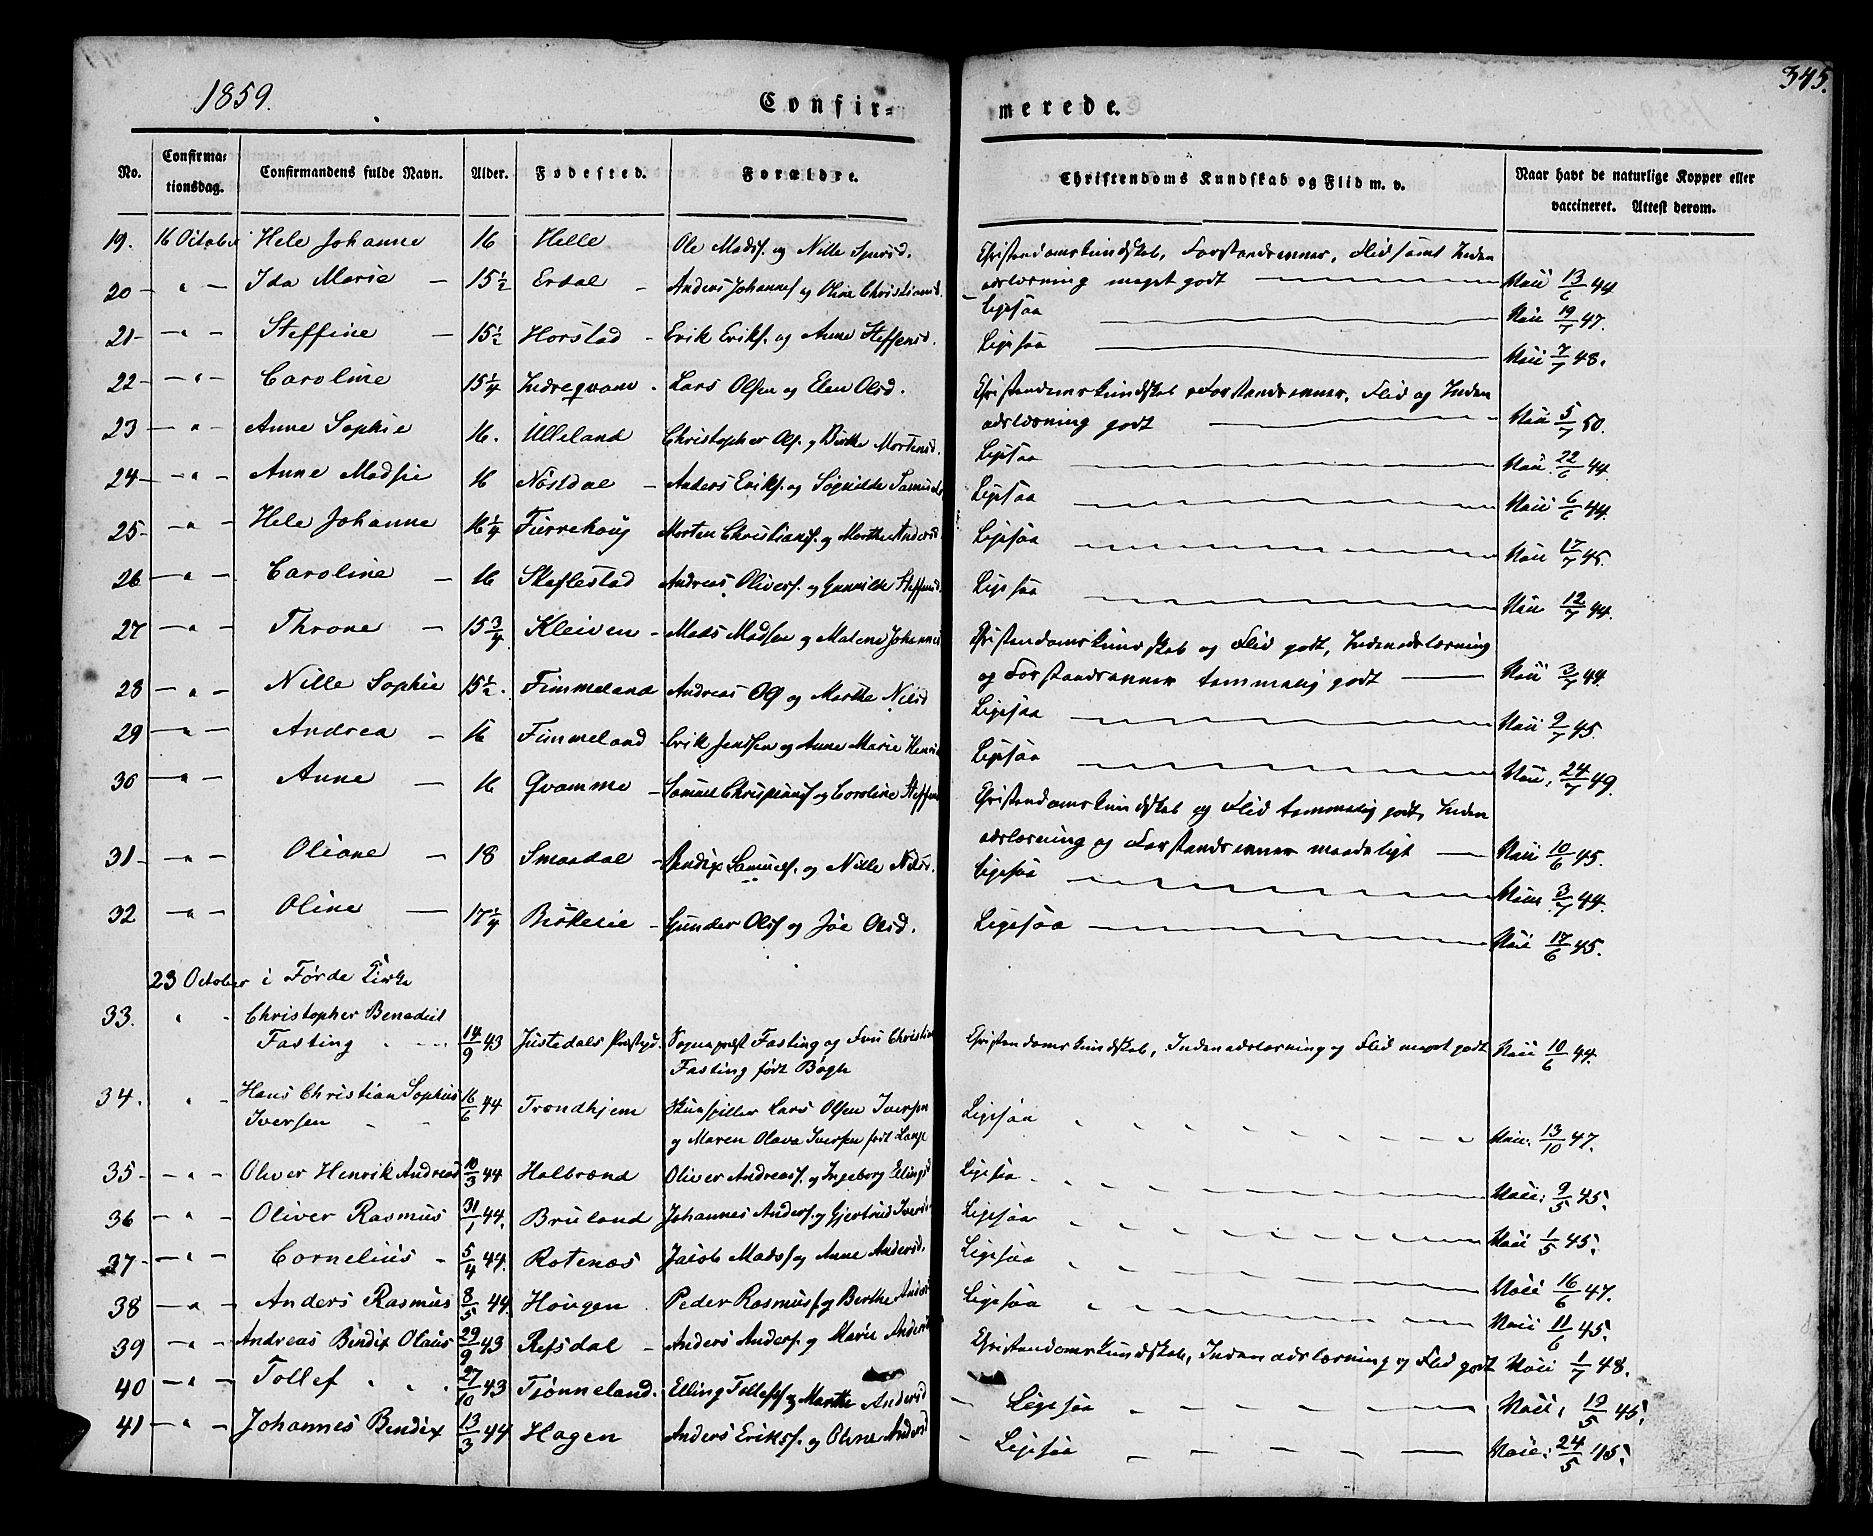 1859.
345.
Confir=
merede.
No.
Confirma=
tionsdag.
Confirmandens fulde Navn.
Alder.
Fødested.
Forældre.
Christendoms Kundskab og Flid m. v.
Naar havt de naturlige Kopper eller
vaccineret. Attest derom.
19. 16 October Hele Johanne 16 Helle Ole Madsf. og Nille Spersd. Christendomskundskab, Forstandsevner, Flid samt Inden
adslæsning meget godt Vacc 13/6 44
20 - " - Ida Marie 15 1/2 Erdal Anders Johannesf og Oline Christiansd. Ligesaa Vacc 19/7 47.
21 - " - Steffine 15 1/2 Horstad Erik Eriksf. og Anne Steffensd. Ligesaa Vacc 7/7 48.
22 - " - Caroline 15 1/4 Indreqvam Lars Olsen og Elen Olsd. Christendomskundskab, Forstandsevner, Flid og Inden
adslæsning godt Vacc 5/7 50.
23 - " - Anne Sophie 16. Ulleland Christopher Ols. og Birthe Mortensd. Ligesaa Vacc. 22/6 44.
24 - " - Anne Madsie 16 Nøstdal Anders Eriksf. og Sigridde Samuels Ligesaa Vacc 6/6 44.
25 - " - Hele Johanne 16 1/4 Furrehoug Morten Christiansf. og Marthe Andersd Ligesaa Vacc 17/7 45.
26 - " - Caroline 16 Skeflestad Andreas Oliversf. og Gunnilde Steffensd. Ligesaa Vacc 12/7 44.
27 - " - Throne 15 3/4 Kleiven Mads Madsen og Malene Johannes Christendomskundskab og Flid godt, Indenadslæsning
og Forstandsevner temmelig godt Vacc 3/7 44.
28 - " - Nille Sophie 15 1/2. Fimmeland Andreas Ols og Marthe Nilsd Ligesaa Vacc 9/7 45.
29 - " - Andrea 16 Fimmeland Erik Jensen og Anne Marie Henrik Ligesaa Vacc. 24/7 49.
30 - " - Anne 16 Qvamme Samuel Christiansf og Caroline Steffens Christendomskundskab og Flid temmelig godt, Inden
adslæsning og Forstandsevner maadeligt Vacc 10/6 45.
31 - " - Oliane 18 Smaadal Bendix Samuelsf. og Nille Nilsd. Ligesaa Vacc 3/7 44.
32 - " - Oline 17 1/4 Birkelie Gunder Olsf og Joe Olsd. Ligesaa Vacc 17/6 45.
23 October i Førde Kirke
33. " - Christopher Benedict
Fasting 14/9 43 Justedals Præstgd. Sognepræst Fasting og Fru Christiane
Fasting født Bøgh Christendomskundskab, Indenadslæsning og Flid meget godt Vacc 10/6 44.
34. " Hans Christian Sophus
Iversen 16/6 44 Trondhjem Skuespiller Lars Olsen Iversen
og Maren Olava Iversen født Lange Ligesaa Vacc. 13/10 47.
35 - " - Oliver Henrik Andreas 10/3 44 Halbrænd Oliver Andreasf. og Ingeborg Ellingsd Ligesaa Vacc: 9/5 45.
36 - " - Oliver Rasmus 31/1 44. Bruland Johannes Andersf. og Gjertrud Iversd Ligesaa Vacc 1/5 45.
37 - " - Cornelius 5/4 44. Rotenæs Jacob Madsf og Anne Andersd. Ligesaa Vacc 16/6 47.
38 - " - Anders Rasmus 8/5 44. Hougen Peder Rasmusf og Berthe Andersd Ligesaa Vacc 11/6 45.
39 - " - Andreas Bendix Olaus 29/9 43 Refsdal Anders Andersf. og Marie Andersd Christendomskundskab, Indenadslæsning og Flid godt Vacc 1/7 48.
40 - " - Tollef 27/10 43 Tjønneland. Elling Tollefsf og Marthe Andersd Ligesaa Vacc. 19/5 45.
41 - " - Johannes Bendix 13/3 44 Hagen Anders Eriksf. og Oline Andersd Ligesaa Vacc: 24/5 45.